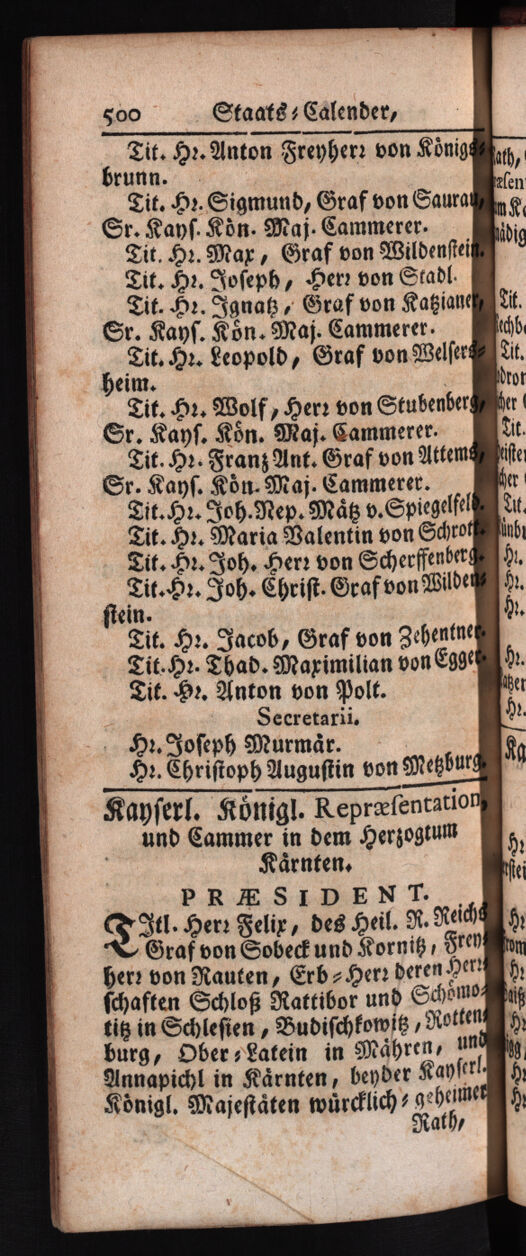 500 Staats-Calender,
Tit. Hr. Anton Freyherr von Königs-
brunn.
Tit. Hr. Sigmund, Graf von Saurau,
Sr. Kays. Kön. Maj. Cammerer.
Tit. Hr. Max, Graf von Wildenstein.
Tit. Hr. Joseph, Herr von Stadl.
Tit. Hr. Ignatz, Graf von Katzianer,
Sr. Kays. Kön. Maj. Cammerer.
Tit. Hr. Leopold, Graf von Welsers-
heim.
Tit. Hr. Wolf, Herr von Stubenberg,
Sr. Kays. Kön. Maj. Cammerer.
Tit. Hr. Franz Ant. Graf von Attems,
Sr. Kays. Kön. Maj. Cammerer.
Tit. Hr. Joh. Nep. Mätz v. Spiegelfeld.
Tit. Hr. Maria Valentin von Schrott.
Tit. Hr. Joh. Herr von Scherffenberg.
Tit. Hr. Joh. Christ. Graf von Wilden-
stein.
Tit. Hr. Jacob, Graf von Zehentner.
Tit. Hr. Thad. Maximilian von Egger.
Tit. Hr. Anton von Polt.
Secretarii.
Hr. Joseph Murmär.
Hr. Christoph Augustin von Metzburg.
Kayserl. Königl. Repræsentation,
und Cammer in dem Herzogtum
Kärnten.
PRÆSIDENT.
TItl. Herr Felix, des Heil. R. Reichs
Graf von Sobeck und Kornitz, Frey-
herr von Rauten, Erb-Herr deren Herr-
schaften Schloß Rattibor und Schömo-
titz in Schlesien, Budischkowitz, Rotten-
burg, Ober-Latein in Mähren, und
Annapichl in Kärnten, beyder Kayserl.
Königl. Majestäten würcklich-geheimer
Rath,